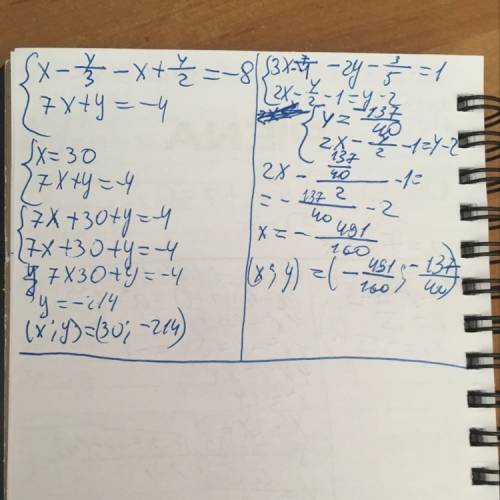 x - y/3 - x + y/2 = -8
7x + y = -4
x = 30
7x + y = -4
7x + 30 + y = -4
7x + 30 + y = -4
7x30 + y = -4
y = -214
(x; y) = (30; -214)
3x - 7/4 - 2y - 3/5 = 1
2x - y/2 - 1 = y - 2
y = 137/40
2x - y/2 - 1 = y - 2
2x - 137/40/2 - 1 =
= - 137/40 - 2
x = - 491/160
(x; y) = (- 491/160; - 137/40)